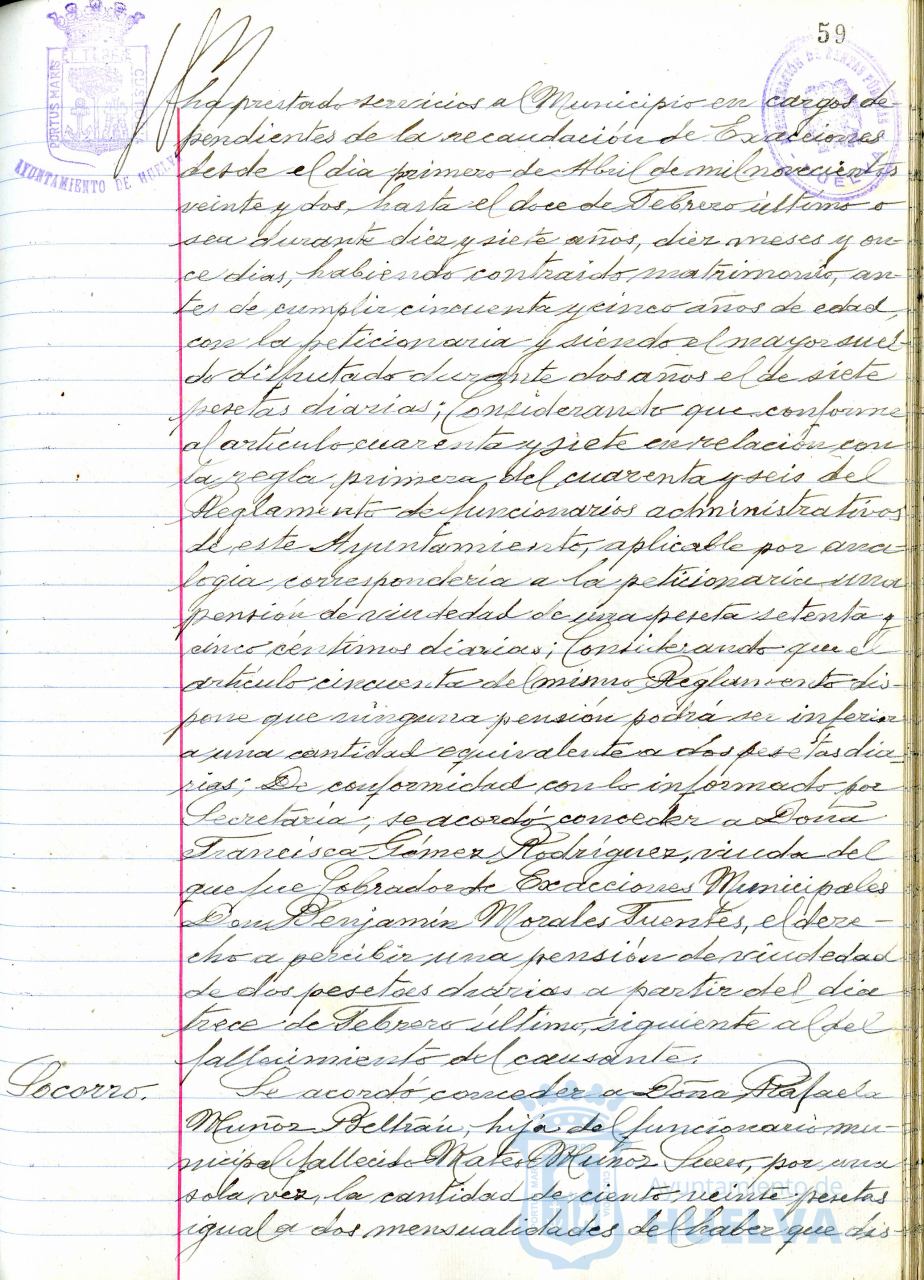 59
PORTUS MARIS
CUSTODIA
AYUNTAMIENTO DE HUELVA
HUELVA
ha prestado servicios al Municipio en cargos de-
pendientes de la recaudación de Exacciones
desde el dia primero de Abril de mil novecientos
veinte y dos, hasta el doce de Febrero último o
sea durante diez y siete años, diez meses y on-
ce dias, habiendo contraido matrimonio, an-
tes de cumplir cincuenta y cinco años de edad,
con la peticionaria y siendo el mayor suel-
do disfrutado durante dos años el de siete
pesetas diarias; Considerando que conforme
al artículo cuarenta y siete en relación con
la regla primera del cuarenta y seis del
Reglamento de funcionarios administrativos
de este Ayuntamiento, aplicable por ana-
logia correspondería a la peticionaria una
pensión de viudedad de una peseta setenta y
cinco céntimos diarias; Considerando que el
artículo cincuenta del mismo Reglamento dis-
pone que ninguna pensión podrá ser inferior
a una cantidad equivalente a dos pesetas dia-
rias; De conformidad con lo informado por
Secretaría, se acordó conceder a Doña
Francisca Gómez Rodríguez, viuda del
que fue Cobrador de Exacciones Municipales
Don Benjamín Morales Fuentes, el dere-
cho a percibir una pensión de viudedad
de dos pesetas diarias a partir del dia
trece de Febrero último, siguiente al del
fallecimiento del causante.
Socorro. Se acordó conceder a Doña Rafaela
Muñoz Beltrán, hija del funcionario mu-
nicipal fallecido Mateo Muñoz, por una
sola vez, la cantidad de ciento veinte pesetas
igual a dos mensualidades del haber que dis-
Ayuntamiento de
HUELVA